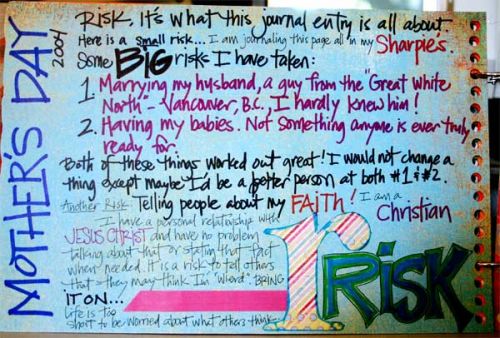 MOTHER'S DAY
2004
RISK, it's what this journal entry is all about.
Here is a small risk... I am journaling this page all in my Sharpies.
Some BIG risks I have taken:
1. Marrying my husband, a guy from the "Great White
North" - Vancouver, B.C., I hardly knew him!
2. Having my babies. Not something anyone is ever truly
ready for.
Both of these things worked out great! I would not change a
thing except maybe I'd be a better person at both #1 & #2.
Another Risk: Telling people about my FAITH! I am a
Christian
I have a personal relationship with
JESUS CHRIST and have no problem
talking about that or stating that fact
when needed. It is a risk to tell others
that they may think I'm "weird". BRING
IT ON...
Life is too
short to be worried about what others think.
r
RISK